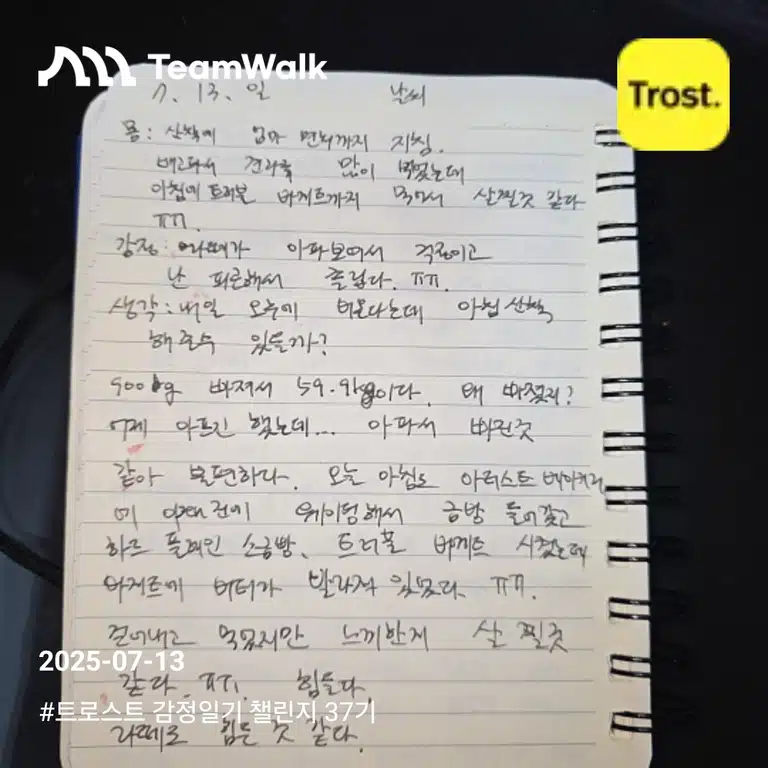 TeamWalk
Trost.
7. 13. 일 날씨
몸: 산책에 엄마 면회까지 지침.
배고파서 견과류 많이 먹었는데
아침에 트러플 바게트까지 먹어서 살찔것 같다
ㅠㅠ.
감정: 라떼가 아파보여서 걱정이고
난 피곤해서 졸립다. ㅠㅠ.
생각: 내일 오후에 비온다는데 아침 산책
해줄수 있을까?
900kg 빠져서 59.9kg이다. 왜 빠졌지?
어제 아프긴 했는데... 아파서 빠진것
같아 불편하다. 오늘 아침도 아티스트 베이커리
에 open전에 웨이팅해서 금방 들어갔고
하프 플레인 소금빵, 트러플 바게트 시켰는데
바게트에 버터가 발라져 있었다. ㅠㅠ.
걷어내고 먹었지만 느끼한게 살 찔것
같다. ㅠㅠ. 힘들다.
라떼도 힘든 것 같다.
2025-07-13
#트로스트 감정일기 챌린지 37기